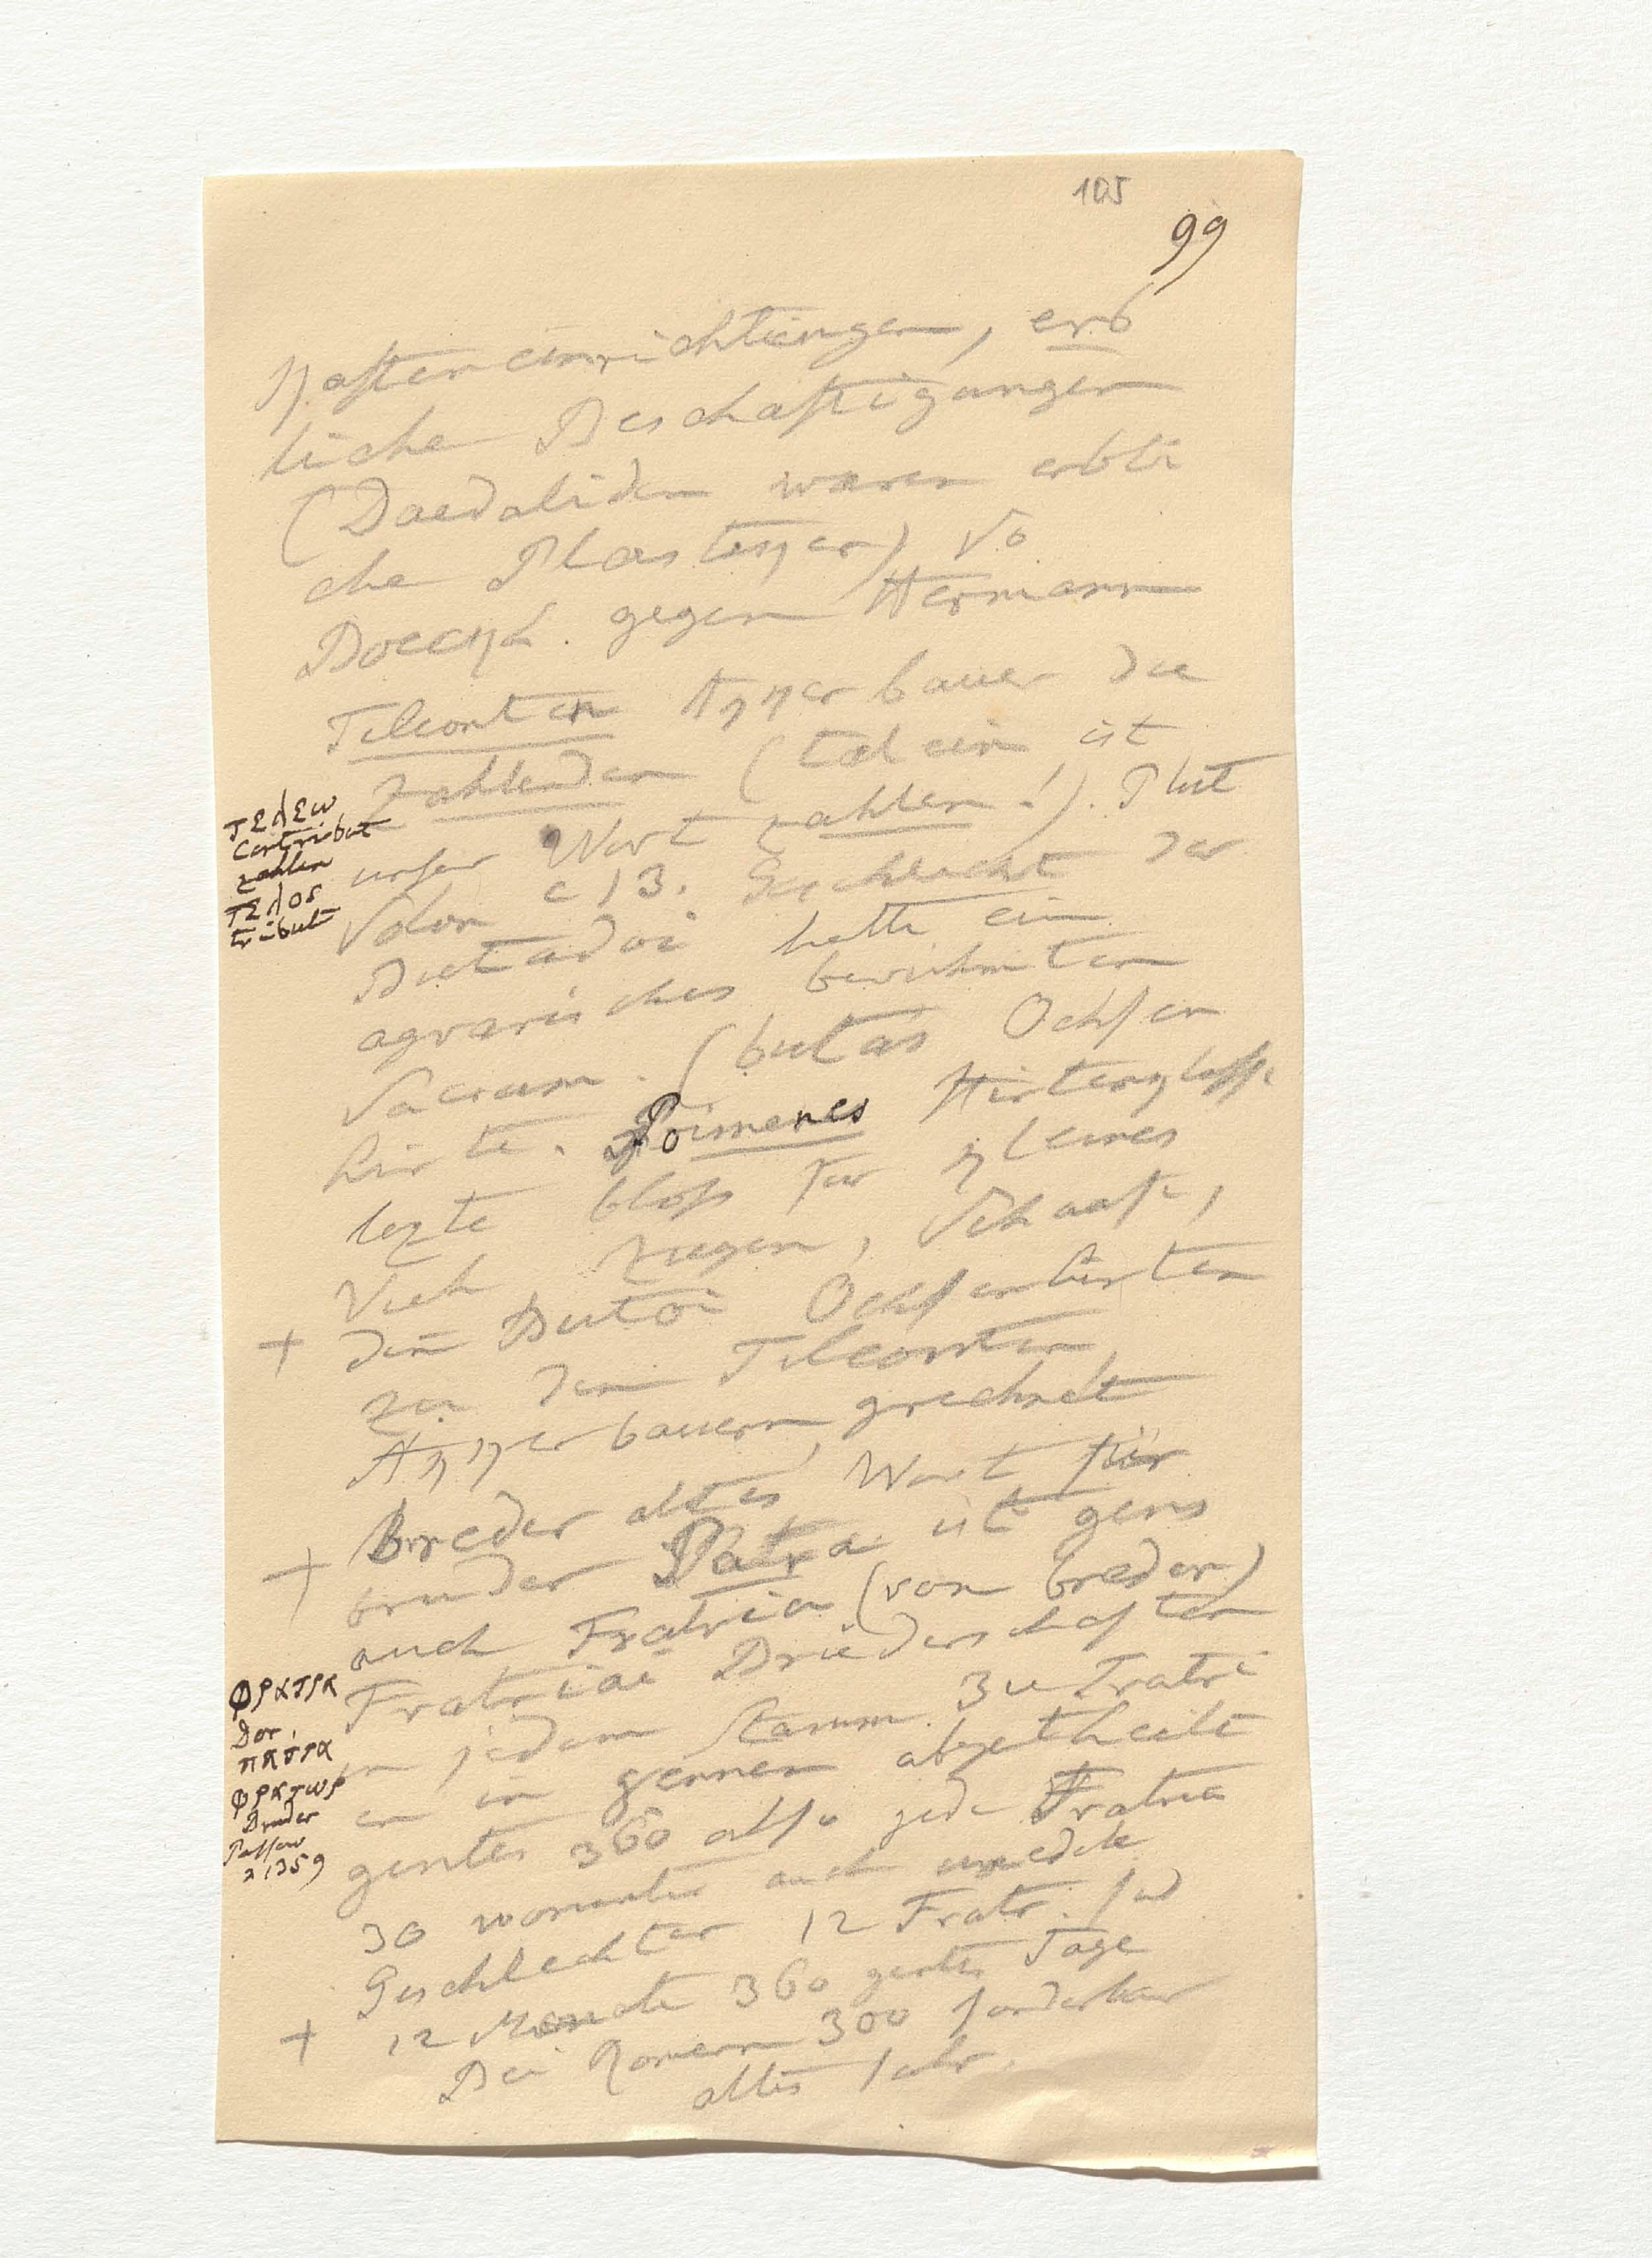 105
99
Kasteneinrichtungen, erb
liche Beschaftigungen
(Daedaliden waren erbli
che Plastiker) So
Boeckh. gegen Hermann
Teleonten Akkerbauer die
zahlenden (telein ist
unser Wort zahlen!). Plut
Solon c 13. Geschlecht der
Butadai hatte ein
agrarisches beruhmten
Sacrum. (butas Ochsen
hirte. Poimenes Hirtenklasse
lezte bloss fur kleines
Vieh Ziegen, Schaafe,
+ die Butai Ochsenhirten
zu den Teleonten
Akkerbauern gerechnet
+ Breder altes Wort für
bruder Patra ist gens
auch Fratria (von breder)
Fratriai Brüderschaften
in jedem Stamm 3 u Fratri
en in gennen abgetheilt
gentes 360 also jede Fratria
30 worunter auch unedele
Geschlechter 12 Fratr. sind
+ 12 Monate 360 gentes Tage
Bei Romern 300 sonderbar
altes Jahr.
τελεω
Contribut
zahlen
τελος
tribut
φρατρα
Dor.
πατρα
φρατωρ
Bruder
Passow
2 1359